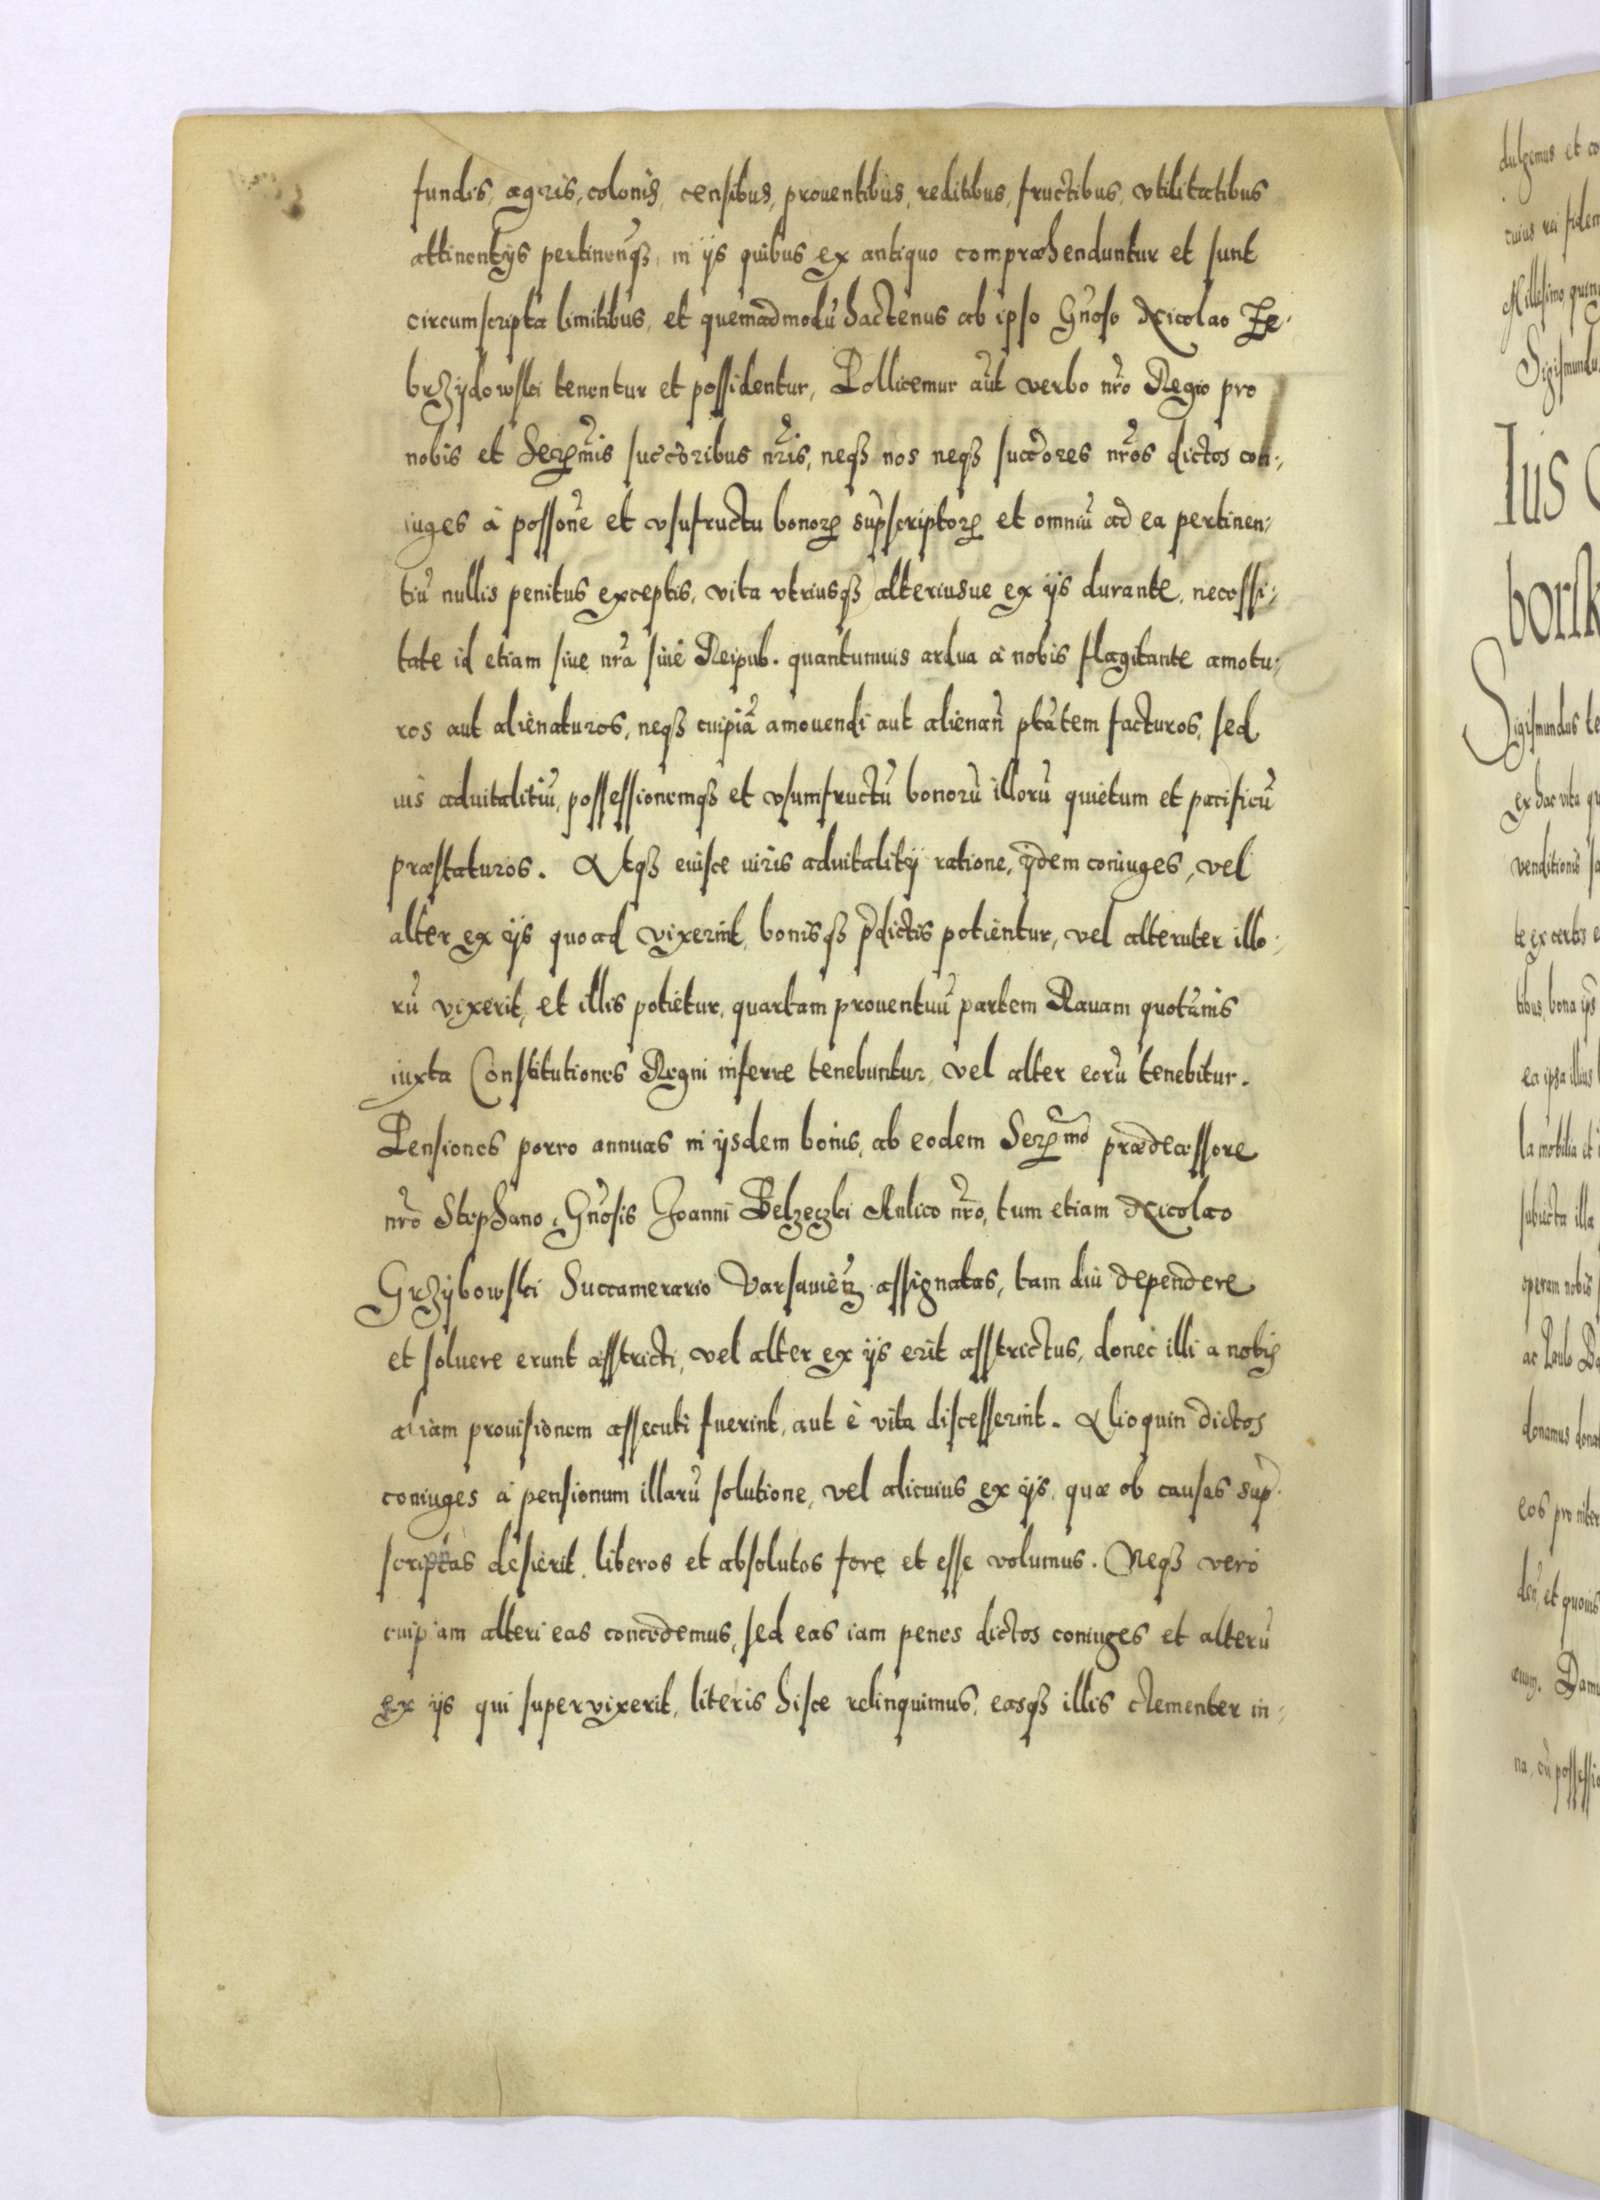 fundis, agris, colonis, censibus, prouentibus, reditibus, fructibus, vtilitatibus
attinentijs pertinenq₃, in ijs quibus ex antiquo compræhenduntur et sunt
circumscripta limitibus, et quemadmodū hactenus ab ipso Gn̄oso Nicolao Ze-
brzydowski tenentur et possidentur, Pollicemur aūt verbo nr̄o Regio pro
nobis et Serꝫmis succōribus nr̄is, neqꝫ nos neqꝫ succōres nr̄os dictos con-
iuges à possōne et vsufructu bonorꝫ sup̄scriptorꝫ et omniū ad ea pertinen-
tiū nullis penitus exceptis, vita vtriusqꝫ alteriusue ex ijs durante, necessi-
tate id etiam siue nr̄a siue Reipub. quantumuis ardua à nobis flagitante amotu-
ros aut alienaturos, neqꝫ cuipiā amouendi aut alienan̄ ptātem facturos, sed
ius aduitalitiū, possessionemqꝫ et vsumfructū bonorū illorū quietum et pacificū
præstaturos. Atqꝫ eiusce iuris aduitalitij ratione, ijdem coniuges, vel
alter ex ijs quoad vixerint, bonisqꝫ p̄dictis potientur, vel alteruter illo-
rū vixerit, et illis potietur, quartam prouentuū partem Rauam quotānis
iuxta Constitutiones Regni inferre tenebuntur, vel alter eorū tenebitur.
Pensiones porro annuas in ijsdem bonis, ab eodem Serꝫmo prædecessore
nr̄o Stephano, Gn̄osis Joanni Belzeczki Aulico nr̄o, tum etiam Nicolao
Grzybowski Succamerario Varsauien̄ assignatas, tam diu dependere
et soluere erunt asstricti, vel alter ex ijs erit asstrictus, donec illi a nobis
aliam prouisionem assecuti fuerint, aut è vita discesserint. Alioquin dictos
coniuges à pensionum illarū solutione, vel alicuius ex ijs, quæ ob causas sup̄-
scriptas desierit, liberos et absolutos fore et esse volumus. Neqꝫ vero
cuipiam alteri eas concedemus, sed eas iam penes dictos coniuges et alterū
ex ijs qui supervixerit, literis hisce relinquimus, easqꝫ illis clementer in-
dulgemus et
cuius rei fidem
Millesimo, quin
Sigismundu
Ius
borsk
Sigismundus
ex hac vita
venditionis
te ex certis
tibus, bona
ea ipsa illius
la mobilia et
subiecta illa
operam nobis
ac Paulo
donamus dona
eos pro
et quouis
Damu
na, cū possessio